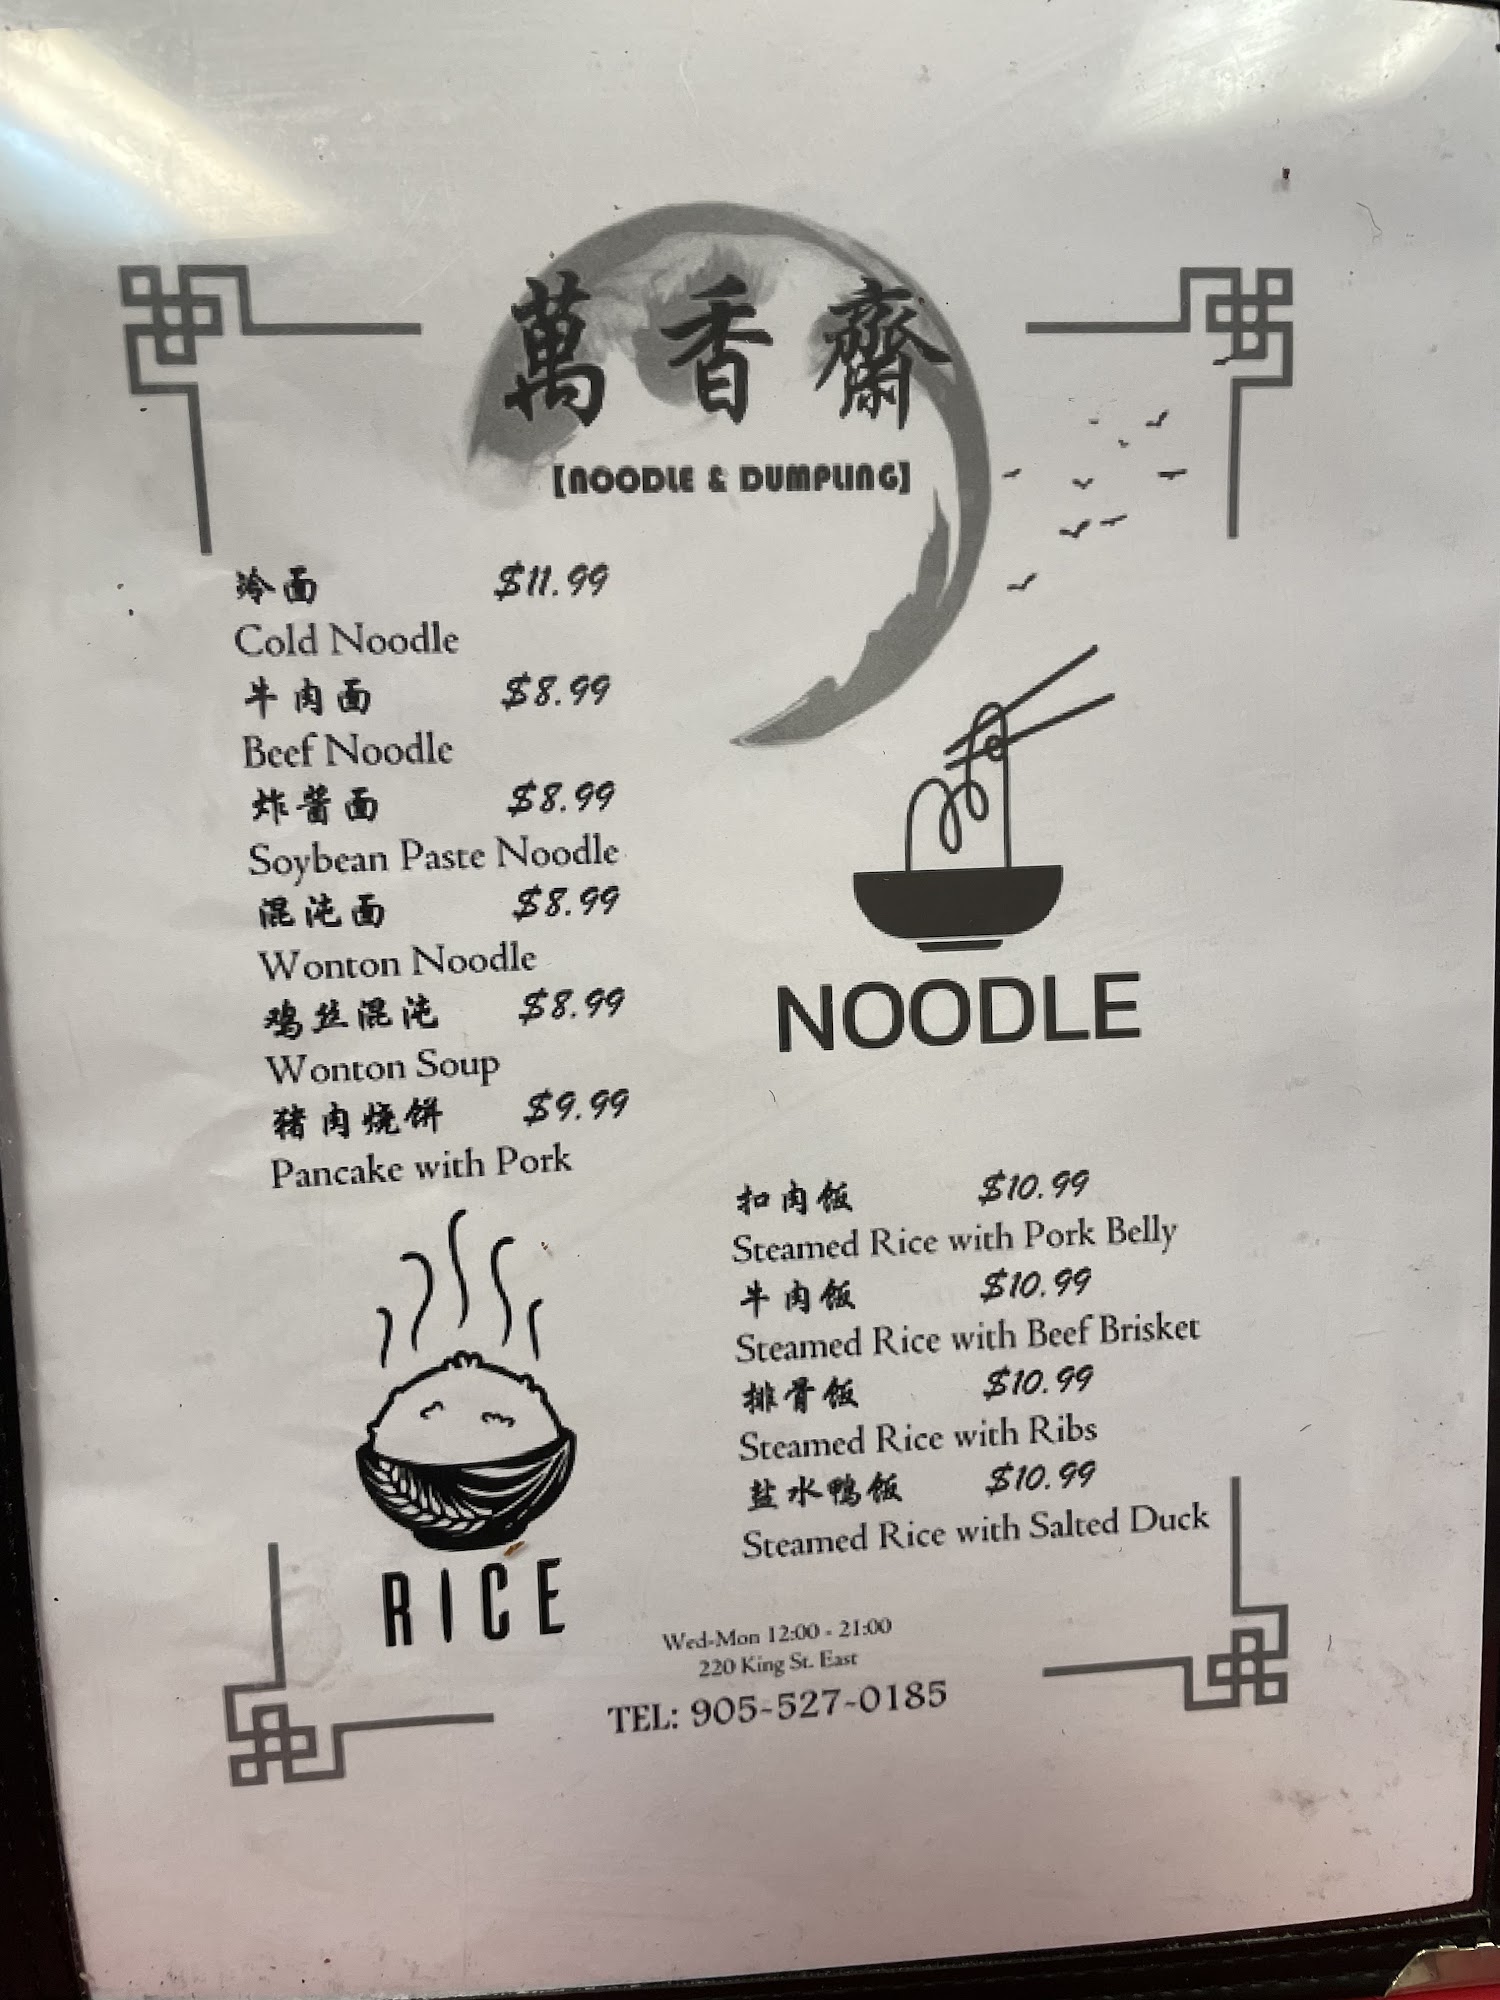 萬香齋
[NOODLE & DUMPLING]
冷面 $11.99
Cold Noodle
牛肉面 $8.99
Beef Noodle
炸酱面 $8.99
Soybean Paste Noodle
混沌面 $8.99
Wonton Noodle
鸡丝混沌 $8.99
Wonton Soup
猪肉烧饼 $9.99
Pancake with Pork
NOODLE
扣肉饭 $10.99
Steamed Rice with Pork Belly
牛肉饭 $10.99
Steamed Rice with Beef Brisket
排骨饭 $10.99
Steamed Rice with Ribs
盐水鸭饭 $10.99
Steamed Rice with Salted Duck
RICE
Wed-Mon 12:00 - 21:00
220 King St. East
TEL: 905-527-0185